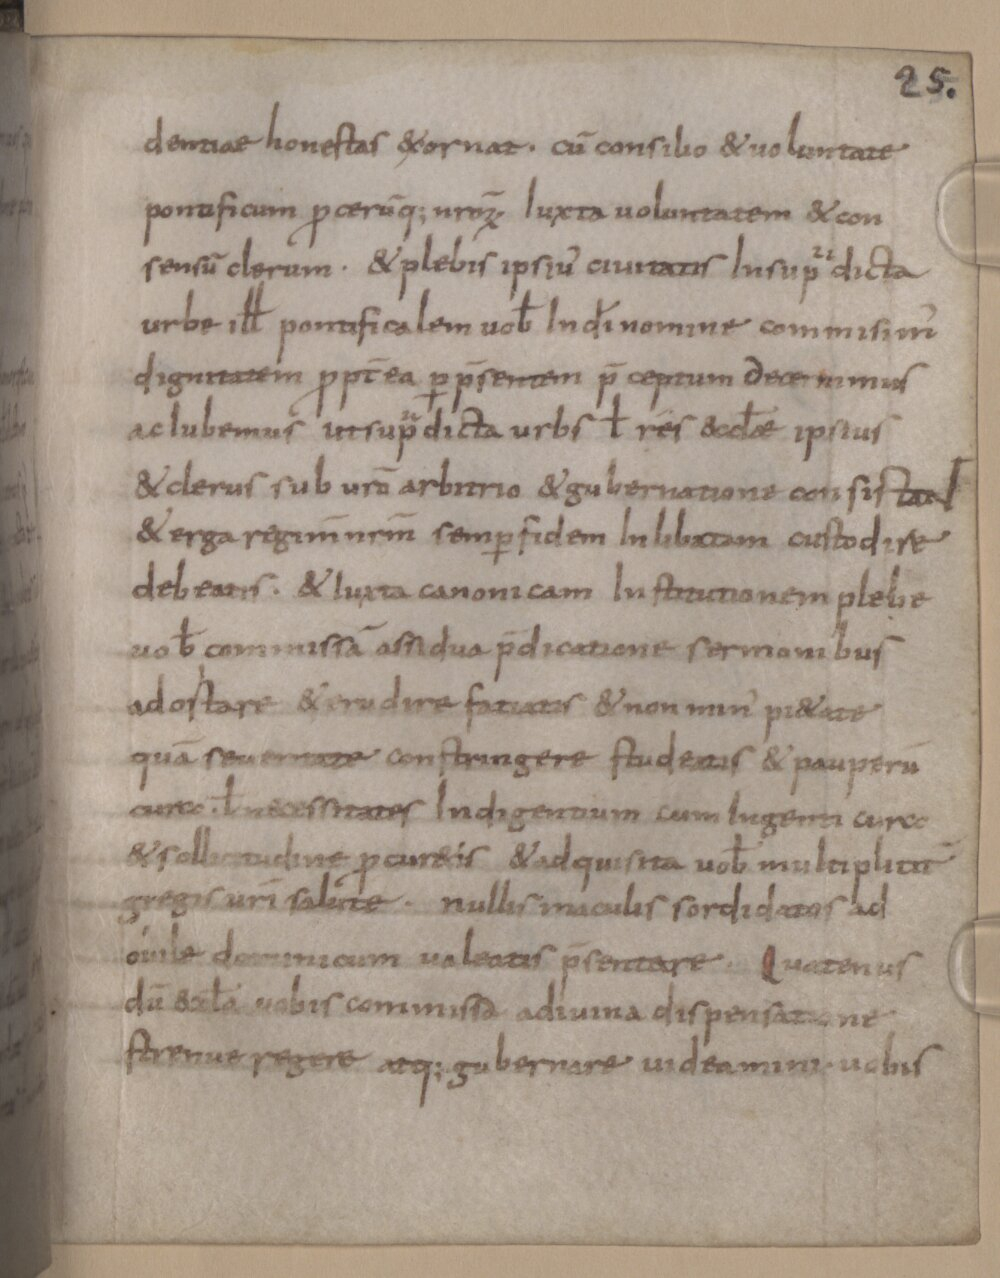 25.
dentiae honestas & ornat · cū consilio & uoluntate
pontificum p̱cerūq; nroꝝ · Iuxta uoluntatem & con
sensū clerum · & plebis ipsiuˀ ciuitatis Insupᵃdicta
urbe ill pontificalem uob̄ In dī nomine commisimˀ
dignitatem ꝓpt̄ ea ꝑ p̄sentem p̄ceptum Decernimus
ac Iubemus ut supᵃdicta urbs ł res &cł̄ae ipsius
& clerus sub uro arbitrio & gubernatione consistat
& erga regim̄ nrm̄ semꝑ fidem Inlibatam custodire
debeatis · & Iuxta canonicam Institutionem plebe
uob̄ commissā assidua p̄dicatione sermonibus
adostare & erudire fatiatis & non minˀ pi&ate
quā seueritate constringere studeatis & pauperū
cura · ł necessitates Indigentium cum Ingenti cura
& sollicitudine ꝓcur&is & adquisita uob̄ multipliciṫ
gregis urī salute · nullis maculis sordidatos ad
ouile dominicum ualeatis p̄sentare · Quatenus
dū &cł̄a uobis commissa adiuina dispensatione
strenue regere atq; gubernare uideamini · uobis